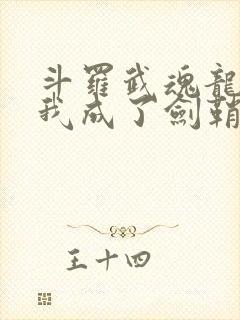 斗羅武魂龍
我成了劍鞘
王十四